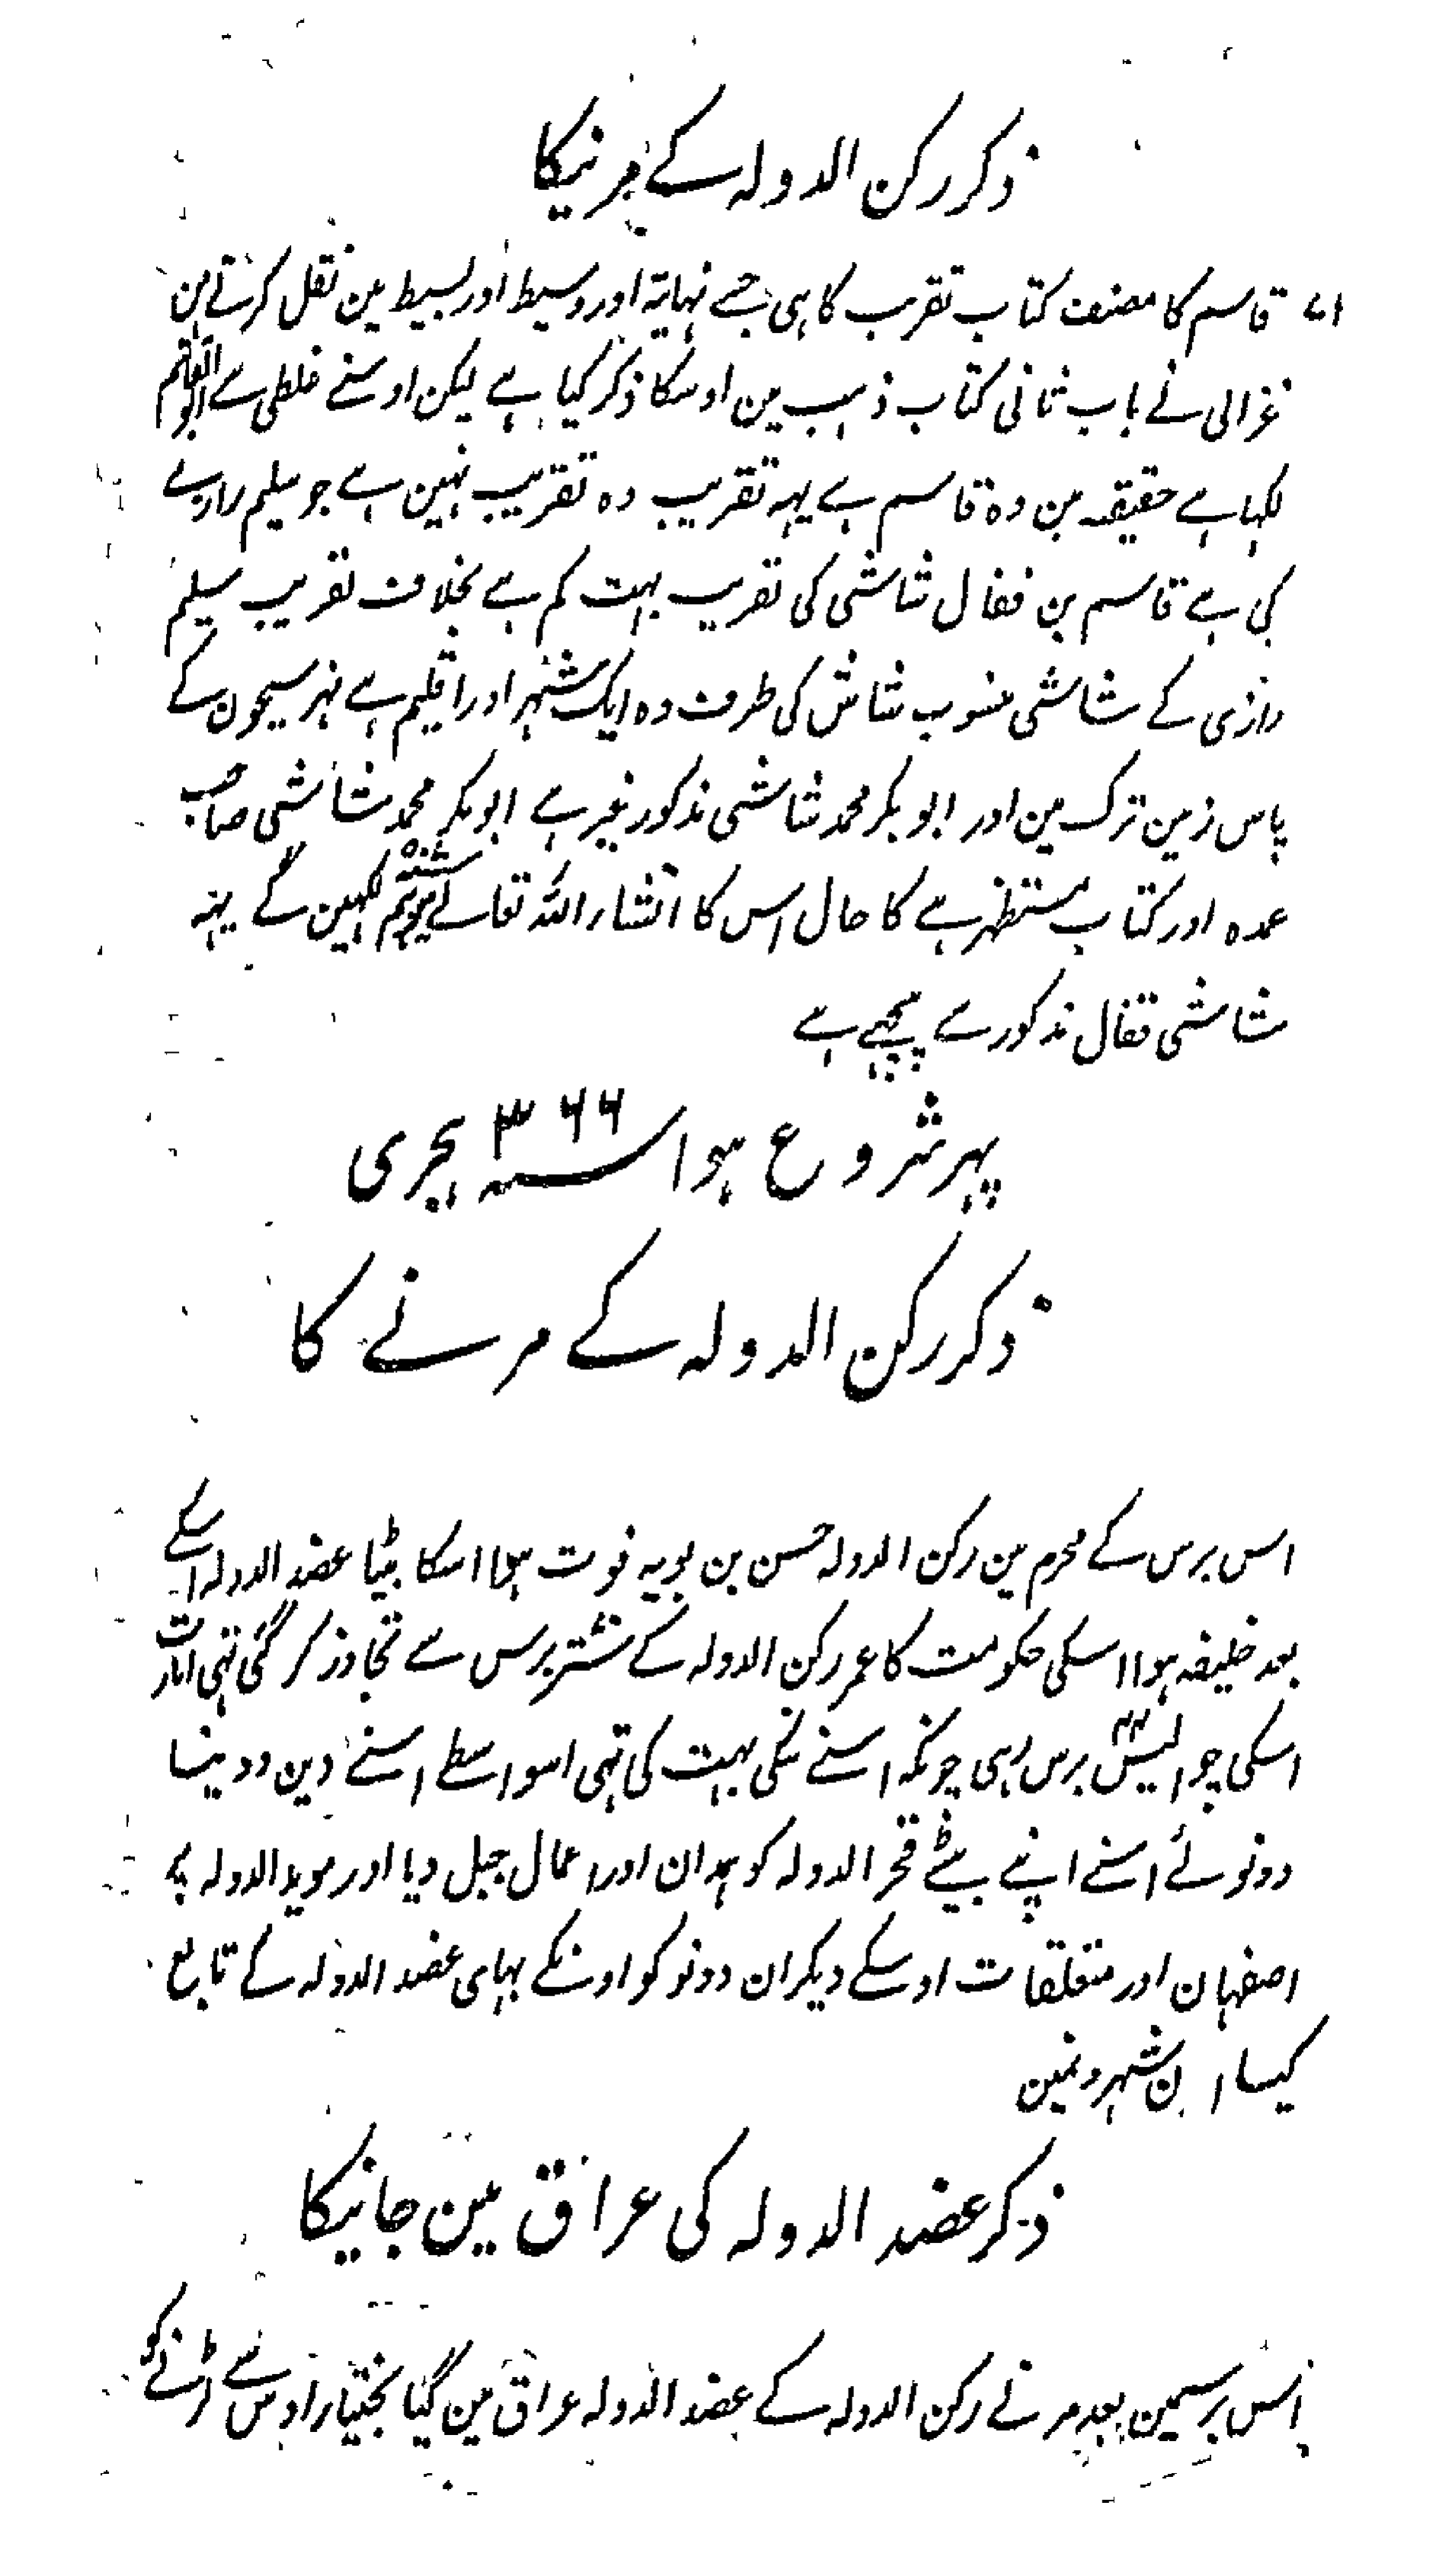 ذکر رکن الدولہ کے مرنیکا
قاسم کا مصنف کتاب تقرب کا ہی جسے نہایۃ اور وسیط اور بسیط مین نقل کرتے ہن
غزالی نے باب ثانی کتاب ذہب مین اوسکا ذکر کیا ہے لیکن اوسنے غلطی سے ابو القاسم
لکہا ہے حقیقہ مین وہ قاسم ہے یہہ تقریب وہ تقریب نہین ہے جو سلیم رازی نے
کی ہے قاسم بن قفال شاشی کی تقریب بہت کم ہے بخلاف تقریب سلیم
رازی کے شاشی منسوب شاش کی طرف وہ ایک شہر اور اقلیم ہے نہر سیحون کے
پاس زمین ترک مین اور ابو بکر محمد شاشی مذکور غیر ہے ابو بکر محمد شاشی صاحب
عمدہ اور کتاب مستظہرے کا حال اس کا انشاء اللہ تعالے لکہین گے یہہ
شاشی قفال مذکور سے پیچہے ہے
پہر شروع ہوا سنہ ۳۶۶ ہجری
ذکر رکن الدولہ کے مرنے کا
اس برس کے محرم مین رکن الدولہ حسن بن بویہ فوت ہوا اسکا بیٹا عضد الدولہ اسکے
بعد خلیفہ ہوا اسکی حکومت کا عمر رکن الدولہ کے ستر برس سے تجاوز کر گئی تہی امارت
اسکی چوالیس ۴۴ برس رہی چونکہ اسنے نیکی بہت کی تہی اسواسطے اسنے دین و دنیا
دونو لئے اسنے اپنے بیٹے فخر الدولہ کو ہمدان اور اعمال جبل دیا اور موید الدولہ کو
اصفہان اور متعلقات اوسکے دیکر ان دونو کو اونکے بہای عضد الدولہ کے تابع
کیا ان شہرونمین
ذکر عضد الدولہ کی عراق مین جانیکا
اس برسمین بعد مرنے رکن الدولہ کے عضد الدولہ عراق مین گیا بختیار اوس سے لڑنے کو